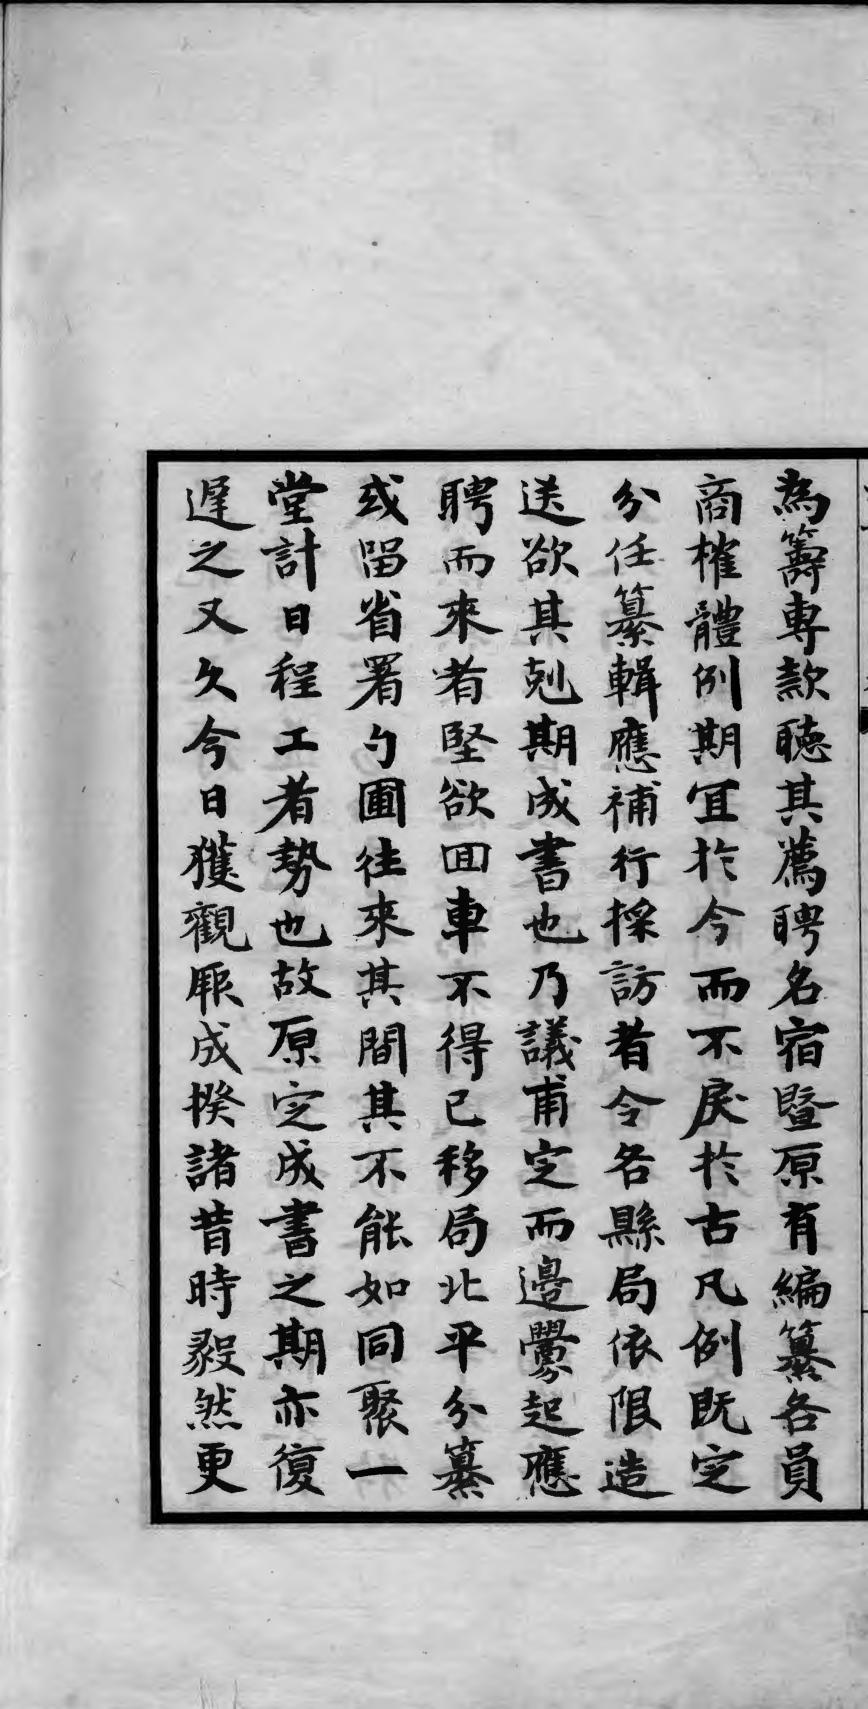 為籌專款聽其薦聘名宿暨原有編纂各員
商榷體例期宜於今而不戾於古凡例既定
分任纂輯應補行採訪者令各縣局依限造
送欲其剋期成書也乃議甫定而邊釁起應
聘而來者堅欲回車不得已移局北平分纂
或留省署勺圃往來其間其不能如同聚一
堂計日程工者勢也故原定成書之期亦復
遲之又久今日獲觀厥成揆諸昔時毅然更